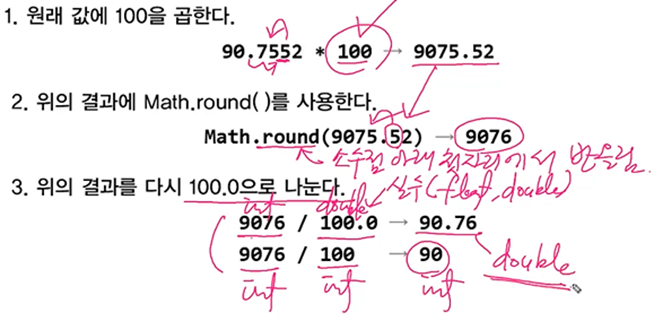 1. 원래 값에 100을 곱한다.
90.7552 * 100 → 9075.52
2. 위의 결과에 Math.round( )를 사용한다.
Math.round(9075.52) → 9076
소수점 아래 첫자리에서 반올림
3. 위의 결과를 다시 100.0으로 나눈다.
실수(float, double)
int double
9076 / 100.0 → 90.76
9076 / 100 → 90
double
int int int